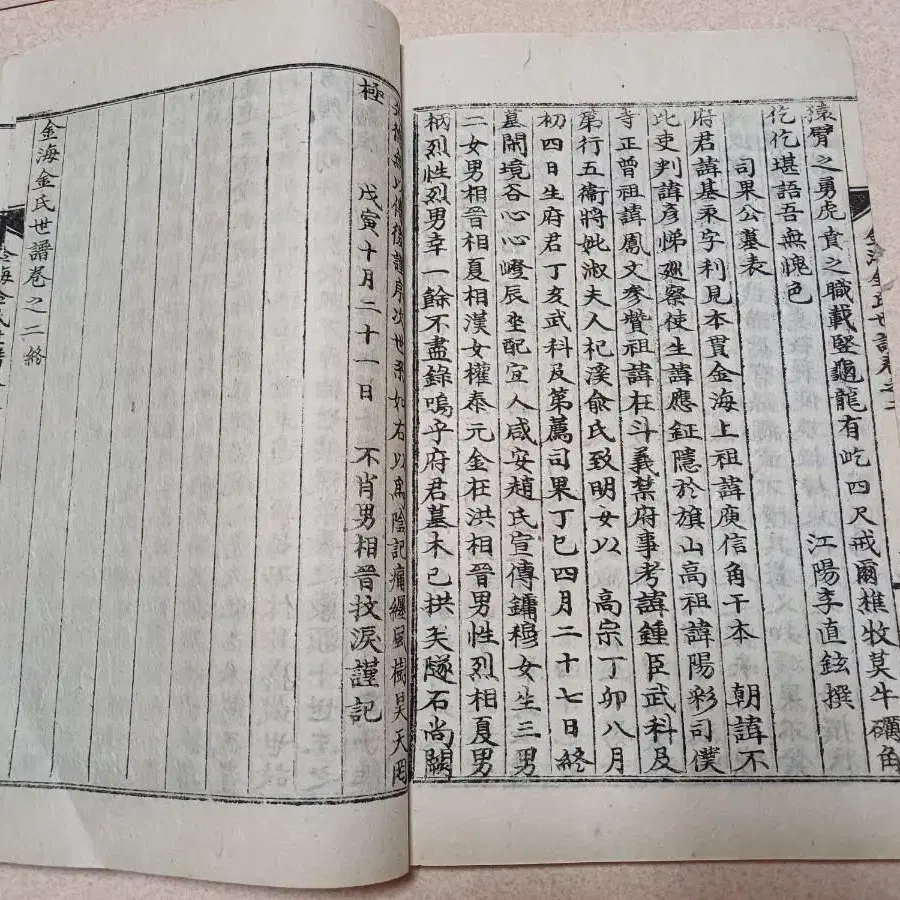 猿臂之勇虎賁之職載竪龜龍有屹四尺戒爾樵牧莫牛礪角
仡仡堪語吾無愧色 江陽李直鉉撰
司果公墓表
府君諱基秉字利見本貫金海上祖諱庾信角干本 朝諱不
此吏判諱彦悌廵察使生諱應鉦隱於旗山高祖諱陽彩司僕
寺正曾祖諱鳳文參贊祖諱枉斗義禁府事考諱鍾臣武科及
第行五衛將妣淑夫人杞溪兪氏致明女以 高宗丁卯八月
初四日生府君丁亥武科及第薦司果丁巳四月二十七日終
墓開境谷心心嶝辰坐配宜人咸安趙氏宣傳鏞穆女生三男
二女男相晉相夏相漢女權泰元金枉洪相晉男性烈相夏男
炳烈性烈男幸一餘不盡錄嗚乎府君墓木已拱矣隧石尚闕
以 後 序次世系如右以爲陰記痛纏風樹昊天罔
極 戊寅十月二十一日 不肖男相晉抆淚謹記
金海金氏世譜卷之二終
金海金氏世譜卷之二